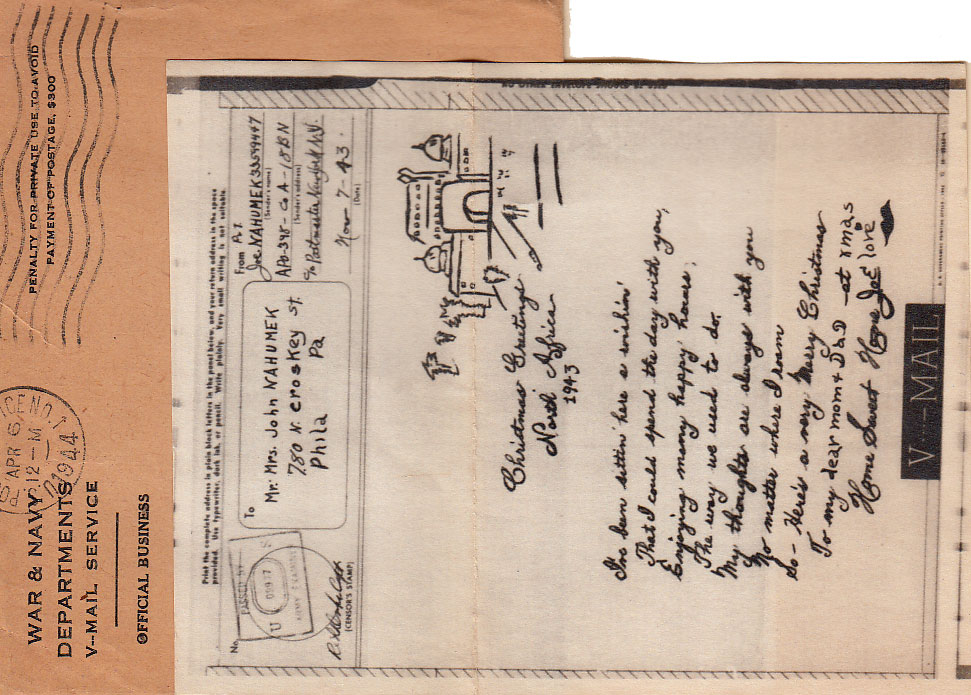 PENALTY FOR PRIVATE USE TO AVOID
PAYMENT OF POSTAGE, $300
APR 6
12-M
1944
WAR & NAVY
DEPARTMENTS
V--MAIL SERVICE
OFFICIAL BUSINESS
Print the complete address in plain block letters in the panel below, and your return address in the space
provided. Use typewriter, dark ink, or pencil. Write plainly. Very small writing is not suitable.
No.
PASSED BY
U S
ARMY EXAMINER
(CENSOR'S STAMP)
To
Mr. Mrs. John NAHUMEK
780 N. croskey st.
Phila Pa
From
Pvt.
Joe NAHUMEK 33599447
(Sender's name)
APO-398-Co A-18 BN
(Sender's address)
c/o Postmaster New York N.Y.
Nov 7-43
(Date)
Christmas Greetings
North Africa
1943
I've been sittin' here a wishin'
That I could spend the day with you,
Enjoying many happy hours,
The way we used to do.
My thoughts are always with you
No matter where I roam
So - Here's a very Merry Christmas
To my dear mom & Dad - at xmas
Home Sweet Home Joe love
V--MAIL